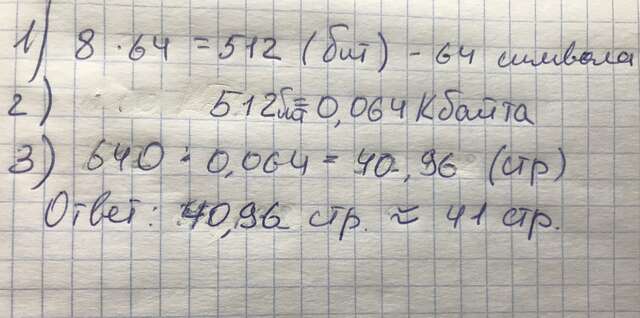 1) 8 · 64 = 512 (бит) - 64 символа
2) 512 бит = 0,064 Кбайта
3) 640 · 0,064 = 40,96 (стр)
Ответ: 40,96 стр. ≈ 41 стр.